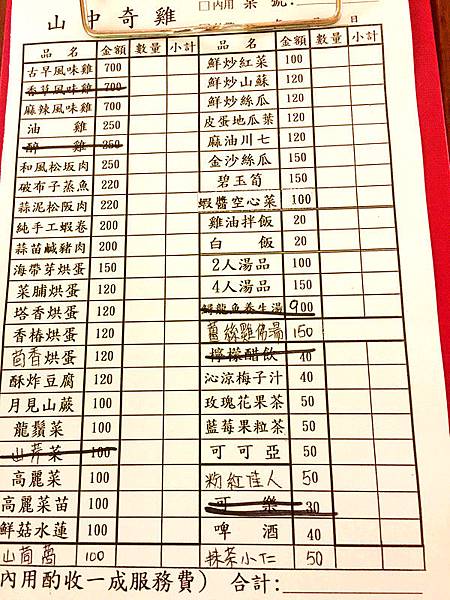 山中奇雞
□內用 桌號:
日
品名 金額 數量 小計
古早風味雞 700
香草風味雞 700
麻辣風味雞 700
油雞 250
醉雞 350
和風松坂肉 250
破布子蒸魚 220
蒜泥松阪肉 220
純手工蝦卷 200
蒜苗鹹豬肉 200
海帶芽烘蛋 150
菜脯烘蛋 120
塔香烘蛋 120
香椿烘蛋 120
茴香烘蛋 120
酥炸豆腐 120
月見山蕨 100
龍鬚菜 100
山芹菜 100
高麗菜 100
高麗菜苗 100
鮮菇水蓮 100
山茼萵 100
品名 金額 數量 小計
鮮炒紅菜 100
鮮炒山蘇 120
鮮炒絲瓜 120
皮蛋地瓜葉 120
麻油川七 120
金沙絲瓜 150
碧玉筍 150
蝦醬空心菜 100
雞油拌飯 20
白飯 20
2人湯品 100
4人湯品 150
鱘龍魚養生湯 900
薑絲雞佛湯 150
檸檬醋飲 40
沁涼梅子汁 40
玫瑰花果茶 50
藍莓果粒茶 50
可可亞 50
粉紅佳人 50
可樂 30
啤酒 40
抹茶小仁 50
內用酌收一成服務費) 合計: